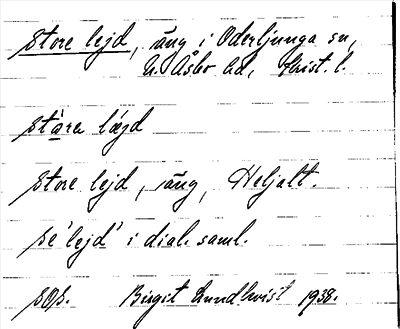 Store lejd, äng i Oderljunga sn,
N. Åsbo hd, Krist. l.
stàra lǽjd
Store lejd, äng, Heljalt.
se 'lejd' i dial. saml.
sOp. Birgit Lundkvist 1938.